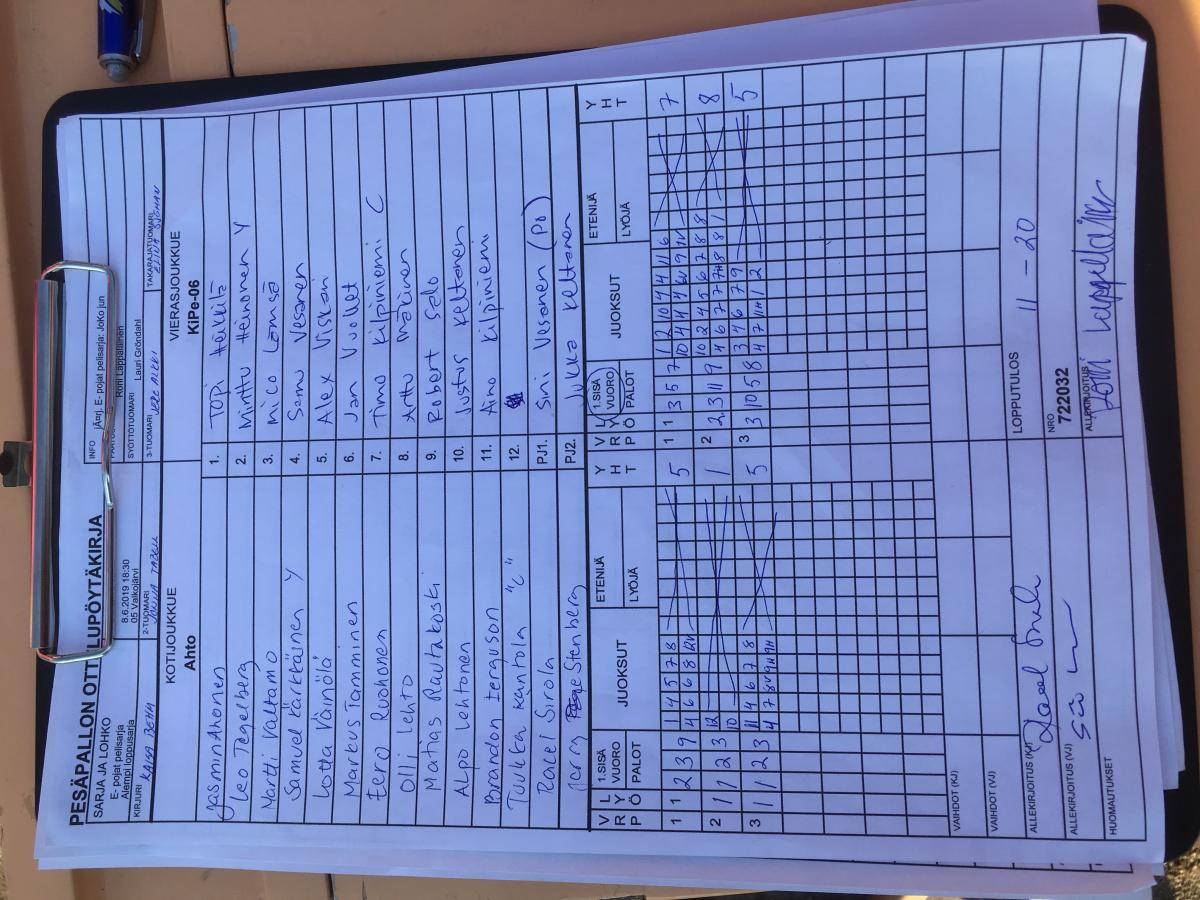 PESÄPALLON OTTELUPÖYTÄKIRJA
SARJA JA LOHKO
E- pojat pelisarja
Alempi loppusarja
8.6.2019 18:30
05 Valkojärvi
INFO
E- pojat pelisarja: JoKo jun
Roni Lappalainen
SYÖTTÖTUOMARI
Lauri Gröndahl
KIRJURI KAISA REHN
2-TUOMARI
3-TUOMARI
TAKARAJATUOMARI
KOTIJOUKKUE
Ahto
VIERASJOUKKUE
KiPe-06
Jasmin Ahonen 1. Topi Heikkilä
Leo Tegelberg 2. Minttu Heinonen Y
Martti Valtamo 3. Mico Lamsä
Samuel Kärkkäinen Y 4. Samu Vesanen
Lotta Väinölä 5. Alex Viskari
Markus Tamminen 6. Jan Vuollet
Eero Ruohonen 7. Timo Kilpiniemi C
Olli Lehto 8. Arttu Mäkinen
Matias Rautakoski 9. Robert Salo
Alpo Lehtonen 10. Justus Keltanen
Brandon Ferguson 11. Aino Kilpiniemi
Tuukka Kantola "C" 12.
Raael Sirola PJ1. Sini Vesanen (PO)
Jerry Stenberg PJ2. Jukka Keltanen
V L R Y P Ö 1.SISÄ VUORO PALOT JUOKSUT ETENIJÄ LYÖJÄ Y H T
V L R Y P Ö 1.SISÄ VUORO PALOT JUOKSUT ETENIJÄ LYÖJÄ Y H T
1 1 2 3 9 1 4 5 7 8 5 1 1 3 5 7 1 2 10 4 4 11 6 7
4 6 6 8 12V 10 4 4 4 6V 9 1V
2 1 1 2 3 12 1 2 2 3 11 9 10 2 4 5 6 7 8 8 8
10 4 6 7 7 7H 8 8 1
3 1 1 2 3 11 4 6 7 8 5 3 3 10 5 8 3 4 6 7 9 5
4 7 8V 9H 9H 4 7 11H 1 2
VAIHDOT (KJ)
VAIHDOT (VJ)
ALLEKIRJOITUS (KJ)
ALLEKIRJOITUS (VJ)
HUOMAUTUKSET
LOPPUTULOS 11 - 20
NRO
722032
ALLEKIRJOITUS
Roni Lappalainen